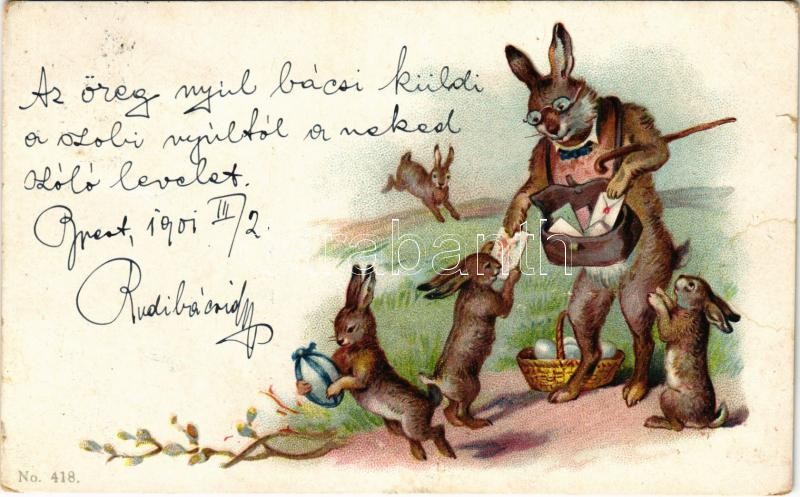 Az öreg nyúl bácsi küldi
a szobi nyúltól a neked
szóló levelet.
Bpest, 1901 III/2.
Rudibácsid
darabanth
No. 418.